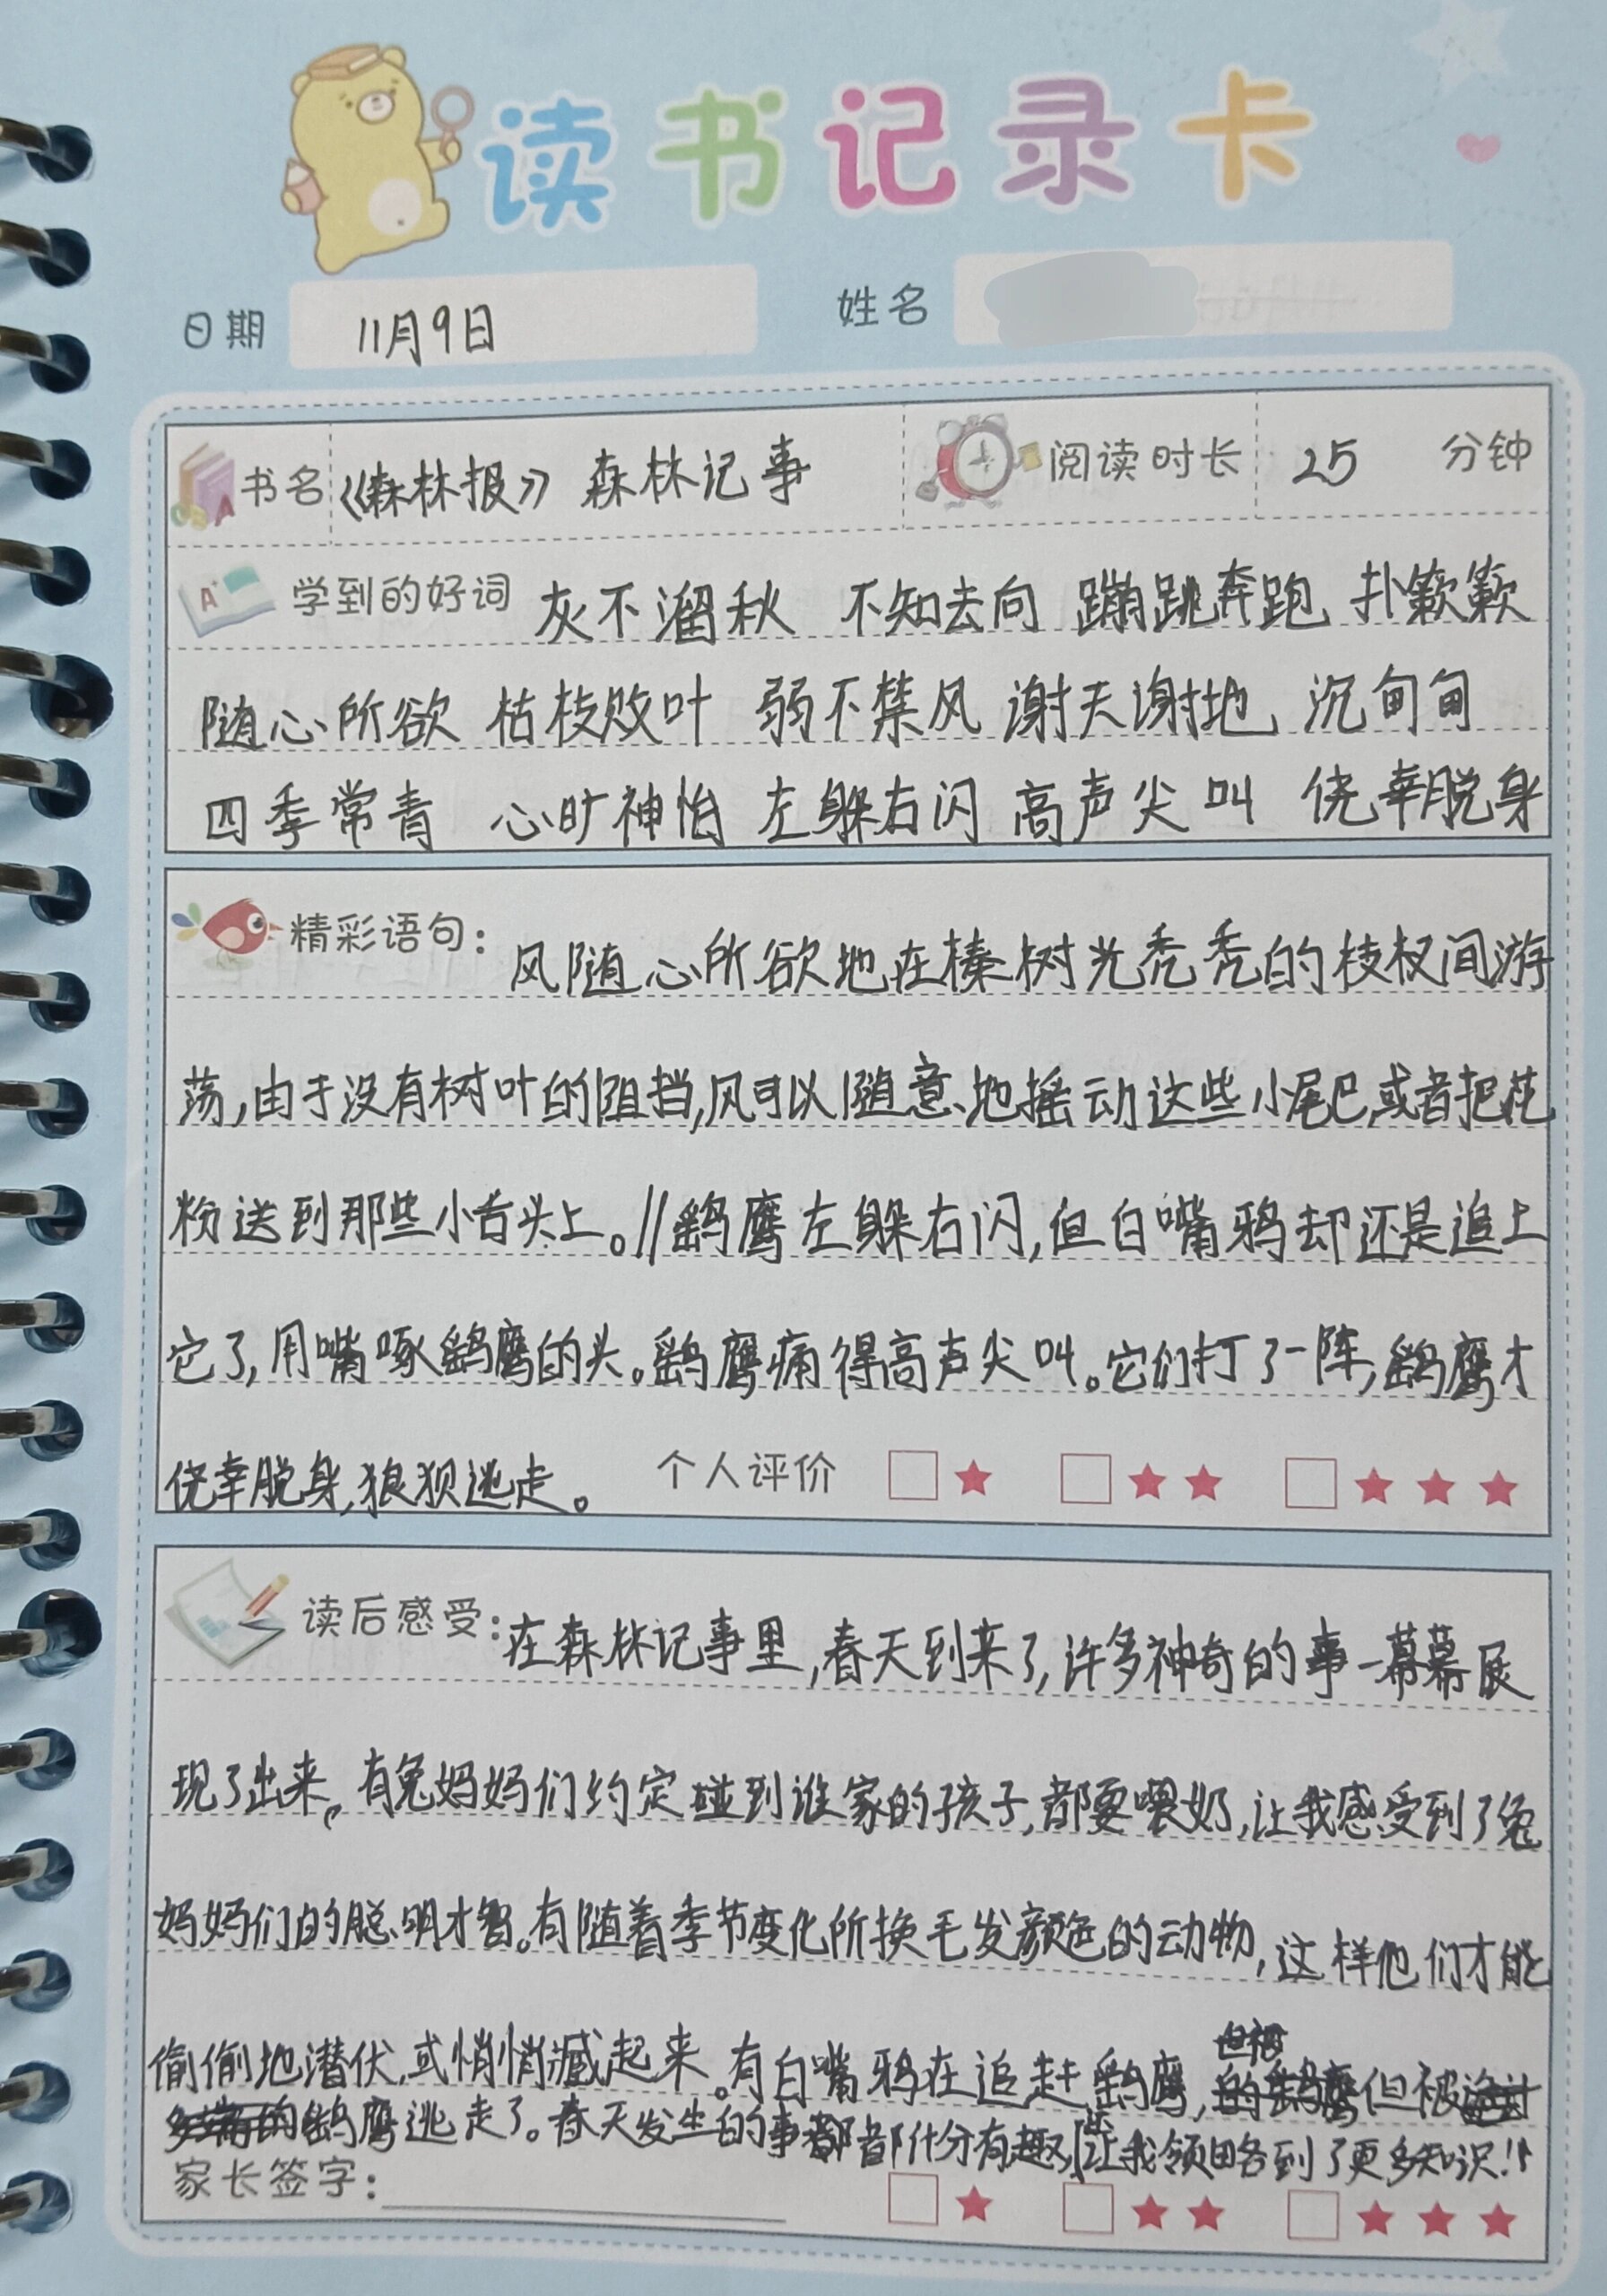 读书记录卡
日期 11月9日 姓名
书名 《森林报》 森林记事 阅读时长 25 分钟
学到的好词 灰不溜秋 不知去向 蹦跳奔跑 扑簌簌
随心所欲 枯枝败叶 弱不禁风 谢天谢地 沉甸甸
四季常青 心旷神怡 左躲右闪 高声尖叫 侥幸脱身
精彩语句: 风随心所欲地在榛树光秃秃的枝杈间游
荡,由于没有树叶的阻挡,风可以随意地摇动这些小尾巴,或者把花
粉送到那些小舌头上。//鹞鹰左躲右闪,但白嘴鸦却还是追上
它了,用嘴啄鹞鹰的头。鹞鹰痛得高声尖叫。它们打了一阵,鹞鹰才
侥幸脱身,狼狈逃走。 个人评价
读后感受:在森林记事里,春天到来了,许多神奇的事一幕幕展
现了出来。有兔妈妈们约定碰到谁家的孩子,都要喂奶,让我感受到了兔
妈妈们的聪明才智。有随着季节变化所换毛发颜色的动物,这样他们才能
偷偷地潜伏,或悄悄藏起来。有白嘴鸦在追赶鹞鹰,但被
鹞鹰逃走了。春天发生的事都什分有趣,让我领略到了更多知识!
家长签字: